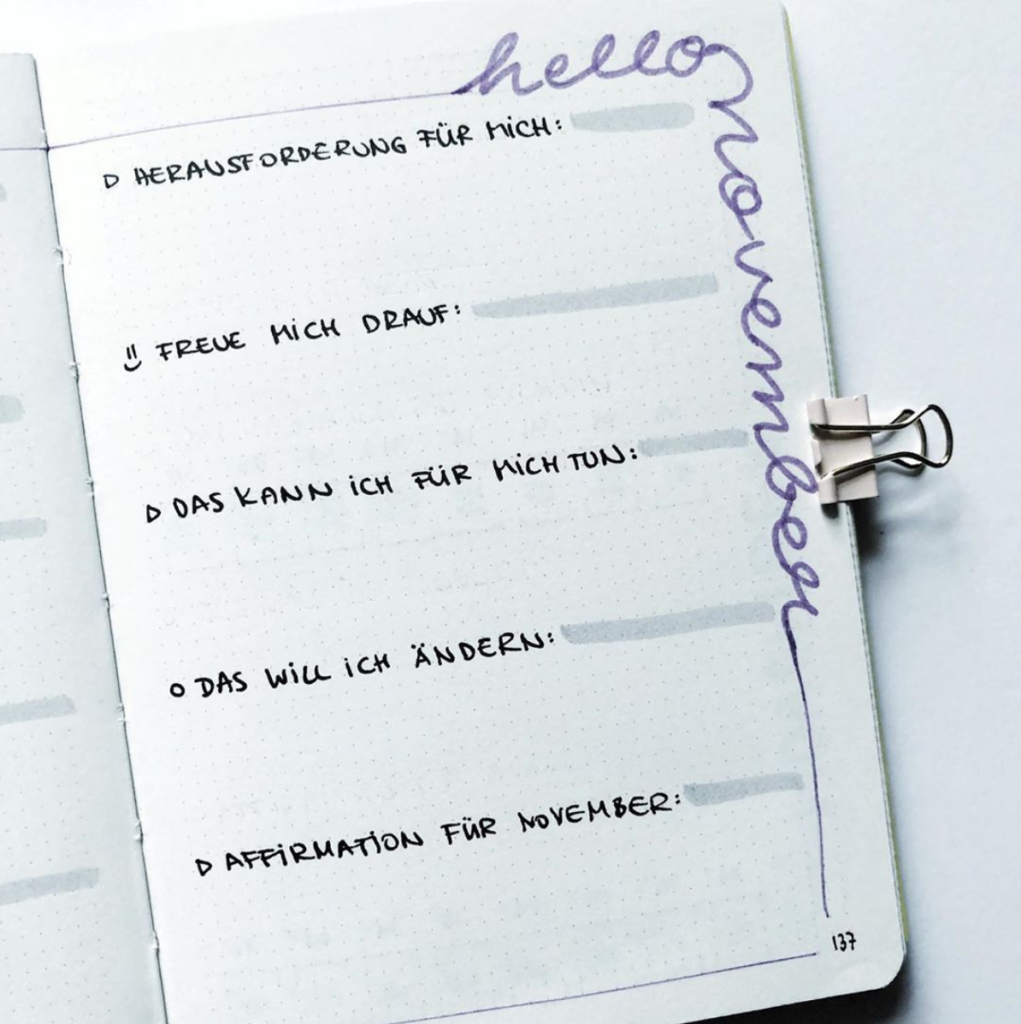 hello november
▷ HERAUSFORDERUNG FÜR MICH:
FREUE MICH DRAUF:
▷ DAS KANN ICH FÜR MICH TUN:
○ DAS WILL ICH ÄNDERN:
▷ AFFIRMATION FÜR NOVEMBER:
137